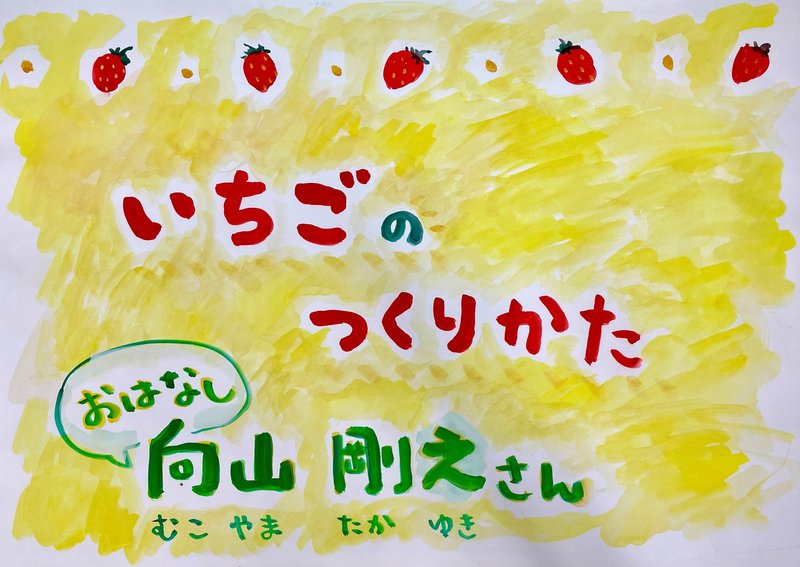 いちごの
つくりかた
おはなし
向山 剛之さん
むこ やま たか ゆき